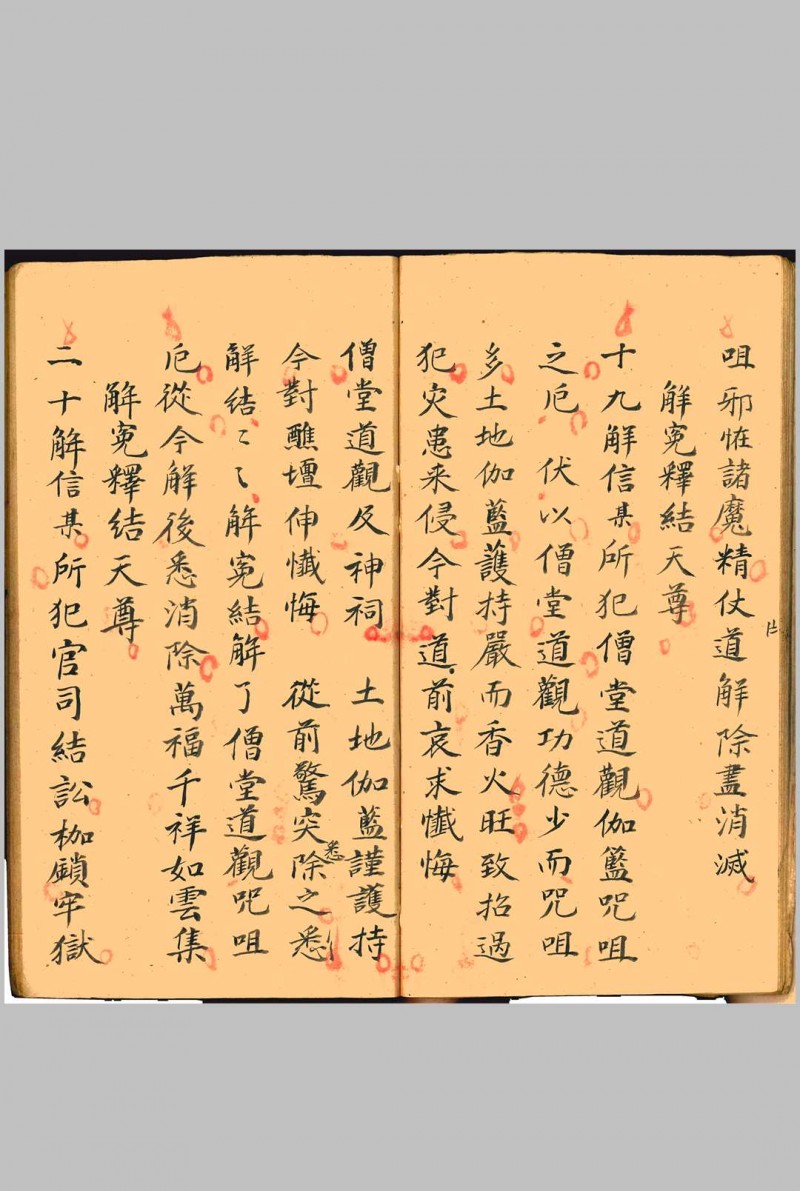 咀邪恠諸魔精仗道解除盡消滅
解寃釋結天尊
十九解信某所犯僧堂道觀伽籃咒咀
之厄　伏以僧堂道觀功德少而咒咀
多土地伽藍護持嚴而香火旺致招過
犯灾患来侵今對道前哀求懺悔
僧堂道觀及神祠　土地伽藍謹護持
今對醮壇伸懺悔　從前驚突除之悉
悉
解結〻〻解寃結解了僧堂道觀咒咀
厄從今解後悉消除萬福千祥如雲集
解寃釋結天尊
二十解信某所犯官司結訟枷鎖牢獄